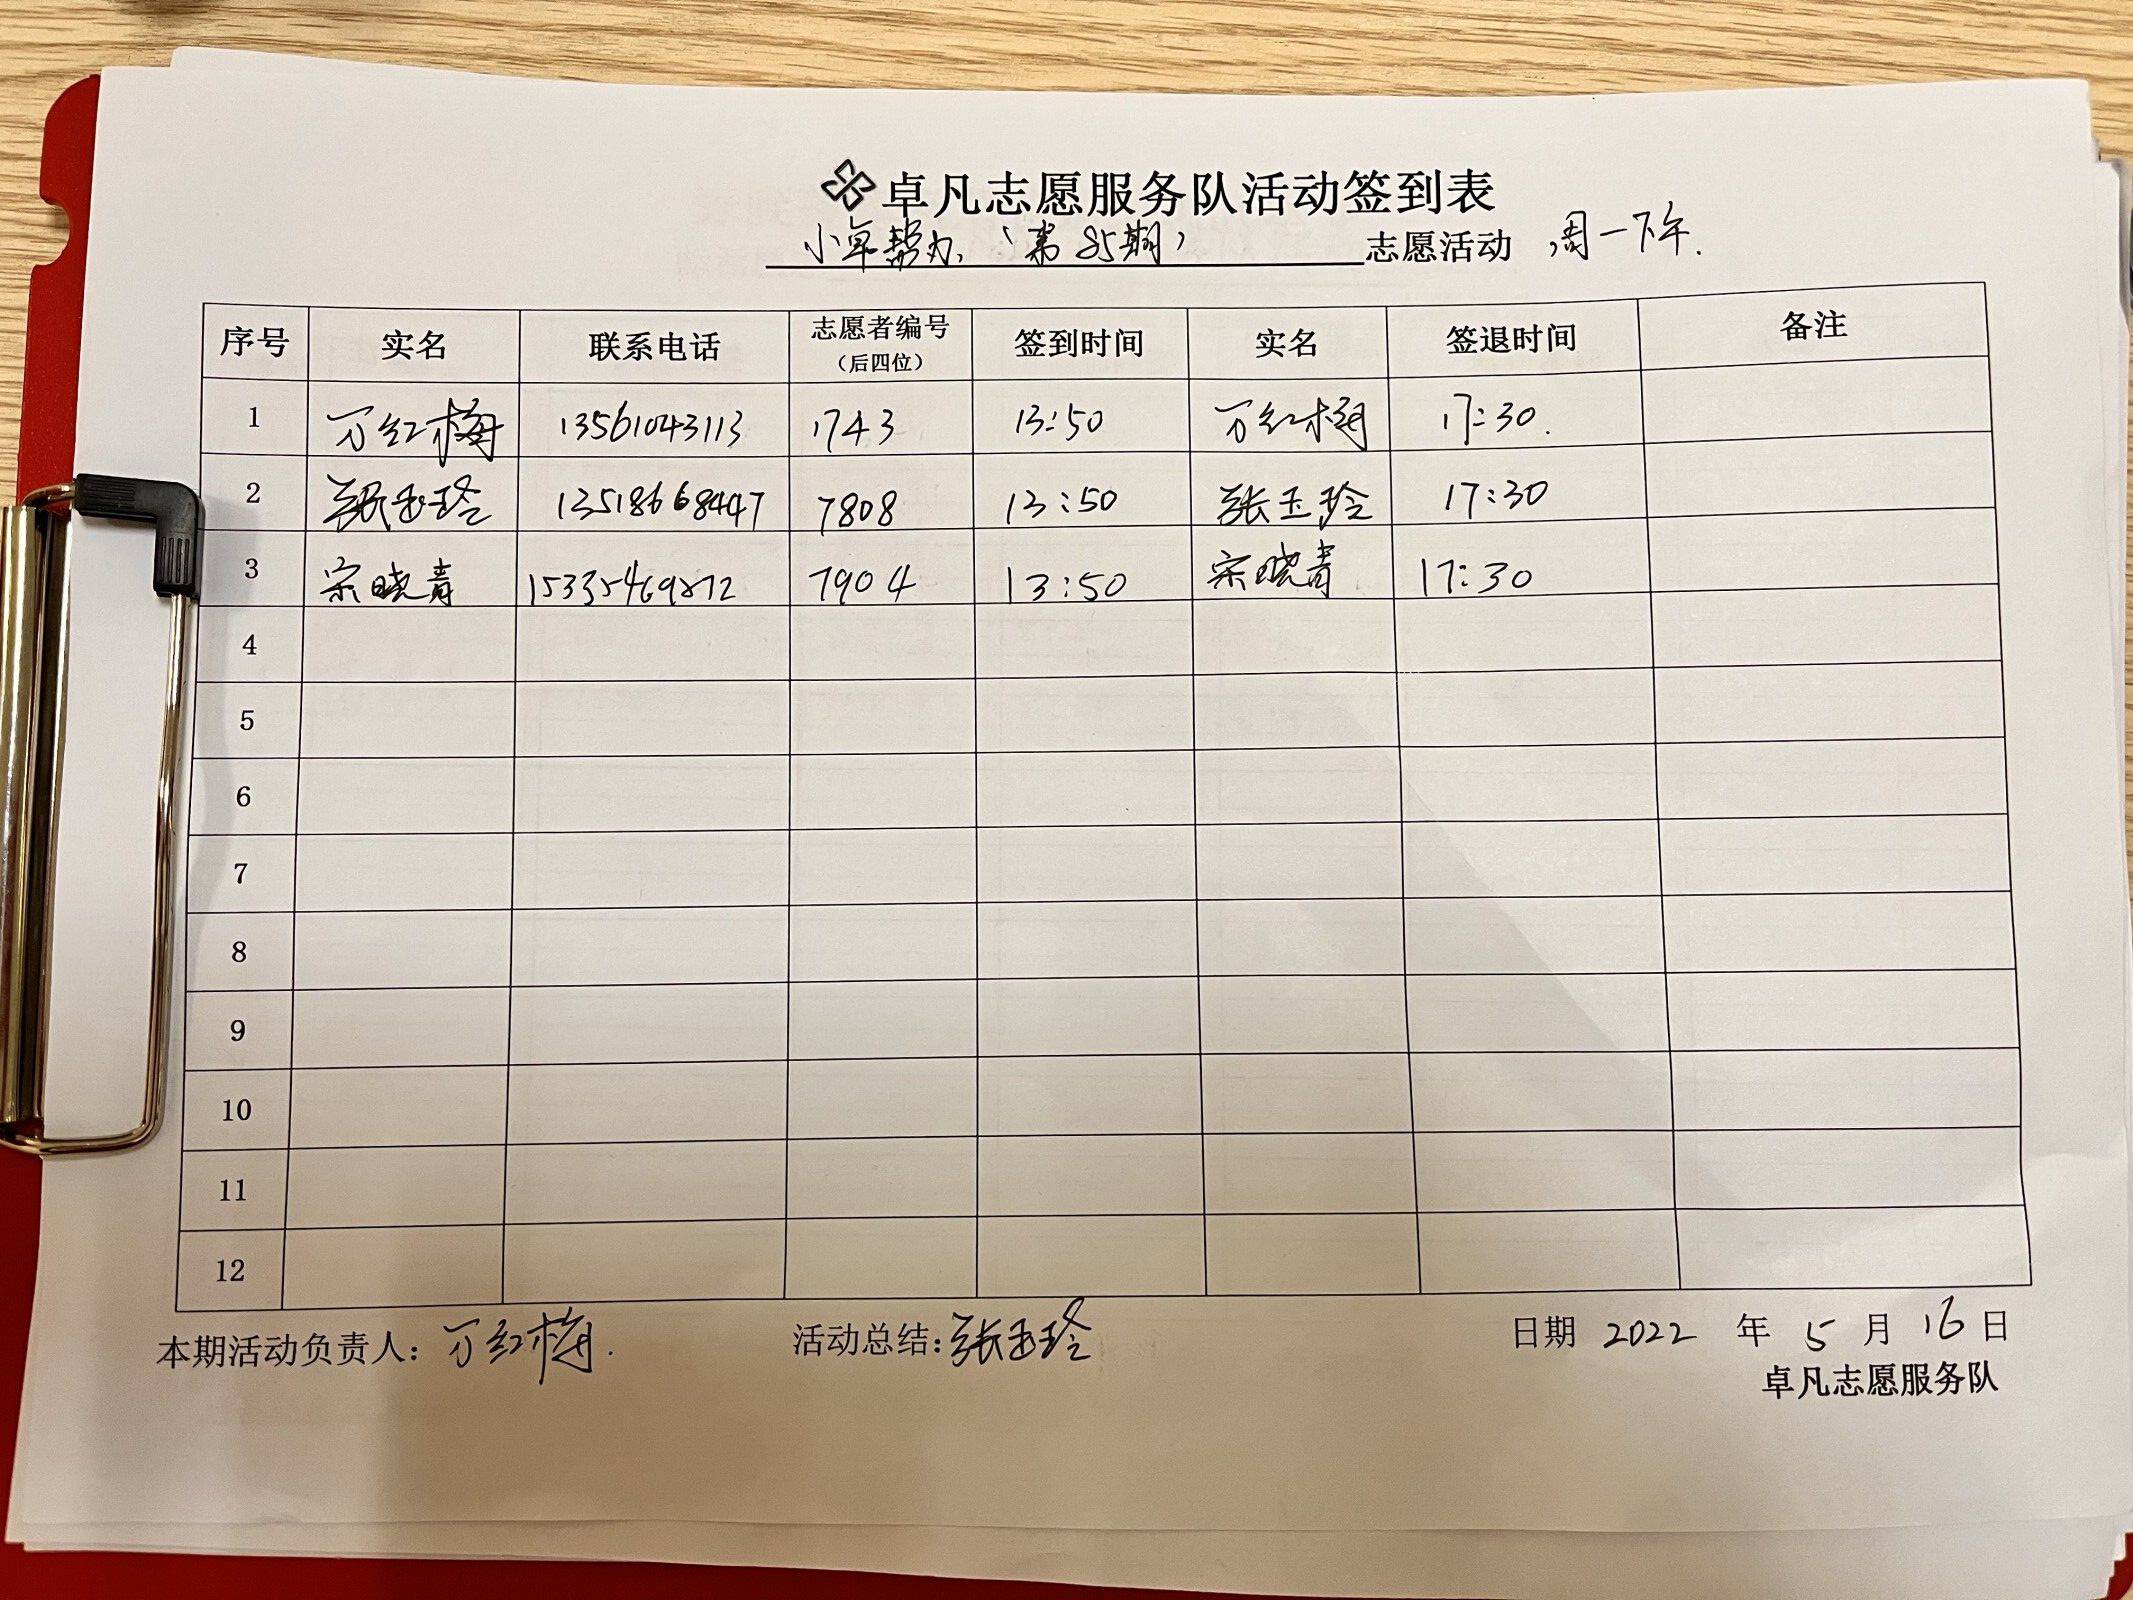 卓凡志愿服务队活动签到表
小卓帮办（第85期） 志愿活动 周一下午.
序号 实名 联系电话 志愿者编号（后四位） 签到时间 实名 签退时间 备注
1 万红梅 13561043113 1743 13:50 万红梅 17:30.
2 张玉玲 13518668447 7808 13:50 张玉玲 17:30
3 宋晓青 7904 13:50 宋晓青 17:30
4
5
6
7
8
9
10
11
12
本期活动负责人：万红梅. 活动总结：张玉玲 日期 2022 年 5 月 16 日
卓凡志愿服务队